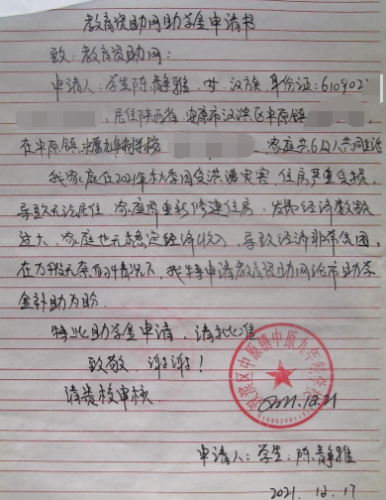 教育资助网助学金申请书
致:教育资助网:
申请人:学生陈静雅,女 汉族,身份证:610902
居住陕西省,安康市汉滨区中原镇
在中原镇中原九年制学校 家庭共6口人共同生活
我家庭在2021年秋季因受洪涝灾害,住房严重受损,
导致无法居住,家庭需重新修建住房,发现经济数额
过大,家庭也无稳定经济收入,导致经济非常困难,
在万般无奈的情况下,我特申请教育资助网给予助学
金补助为盼
特此助学金申请,请批准
致敬,谢谢!
请贵校审核
汉滨区中原镇中原九年制学校
2021.12.21
申请人:学生:陈静雅
2021.12.17